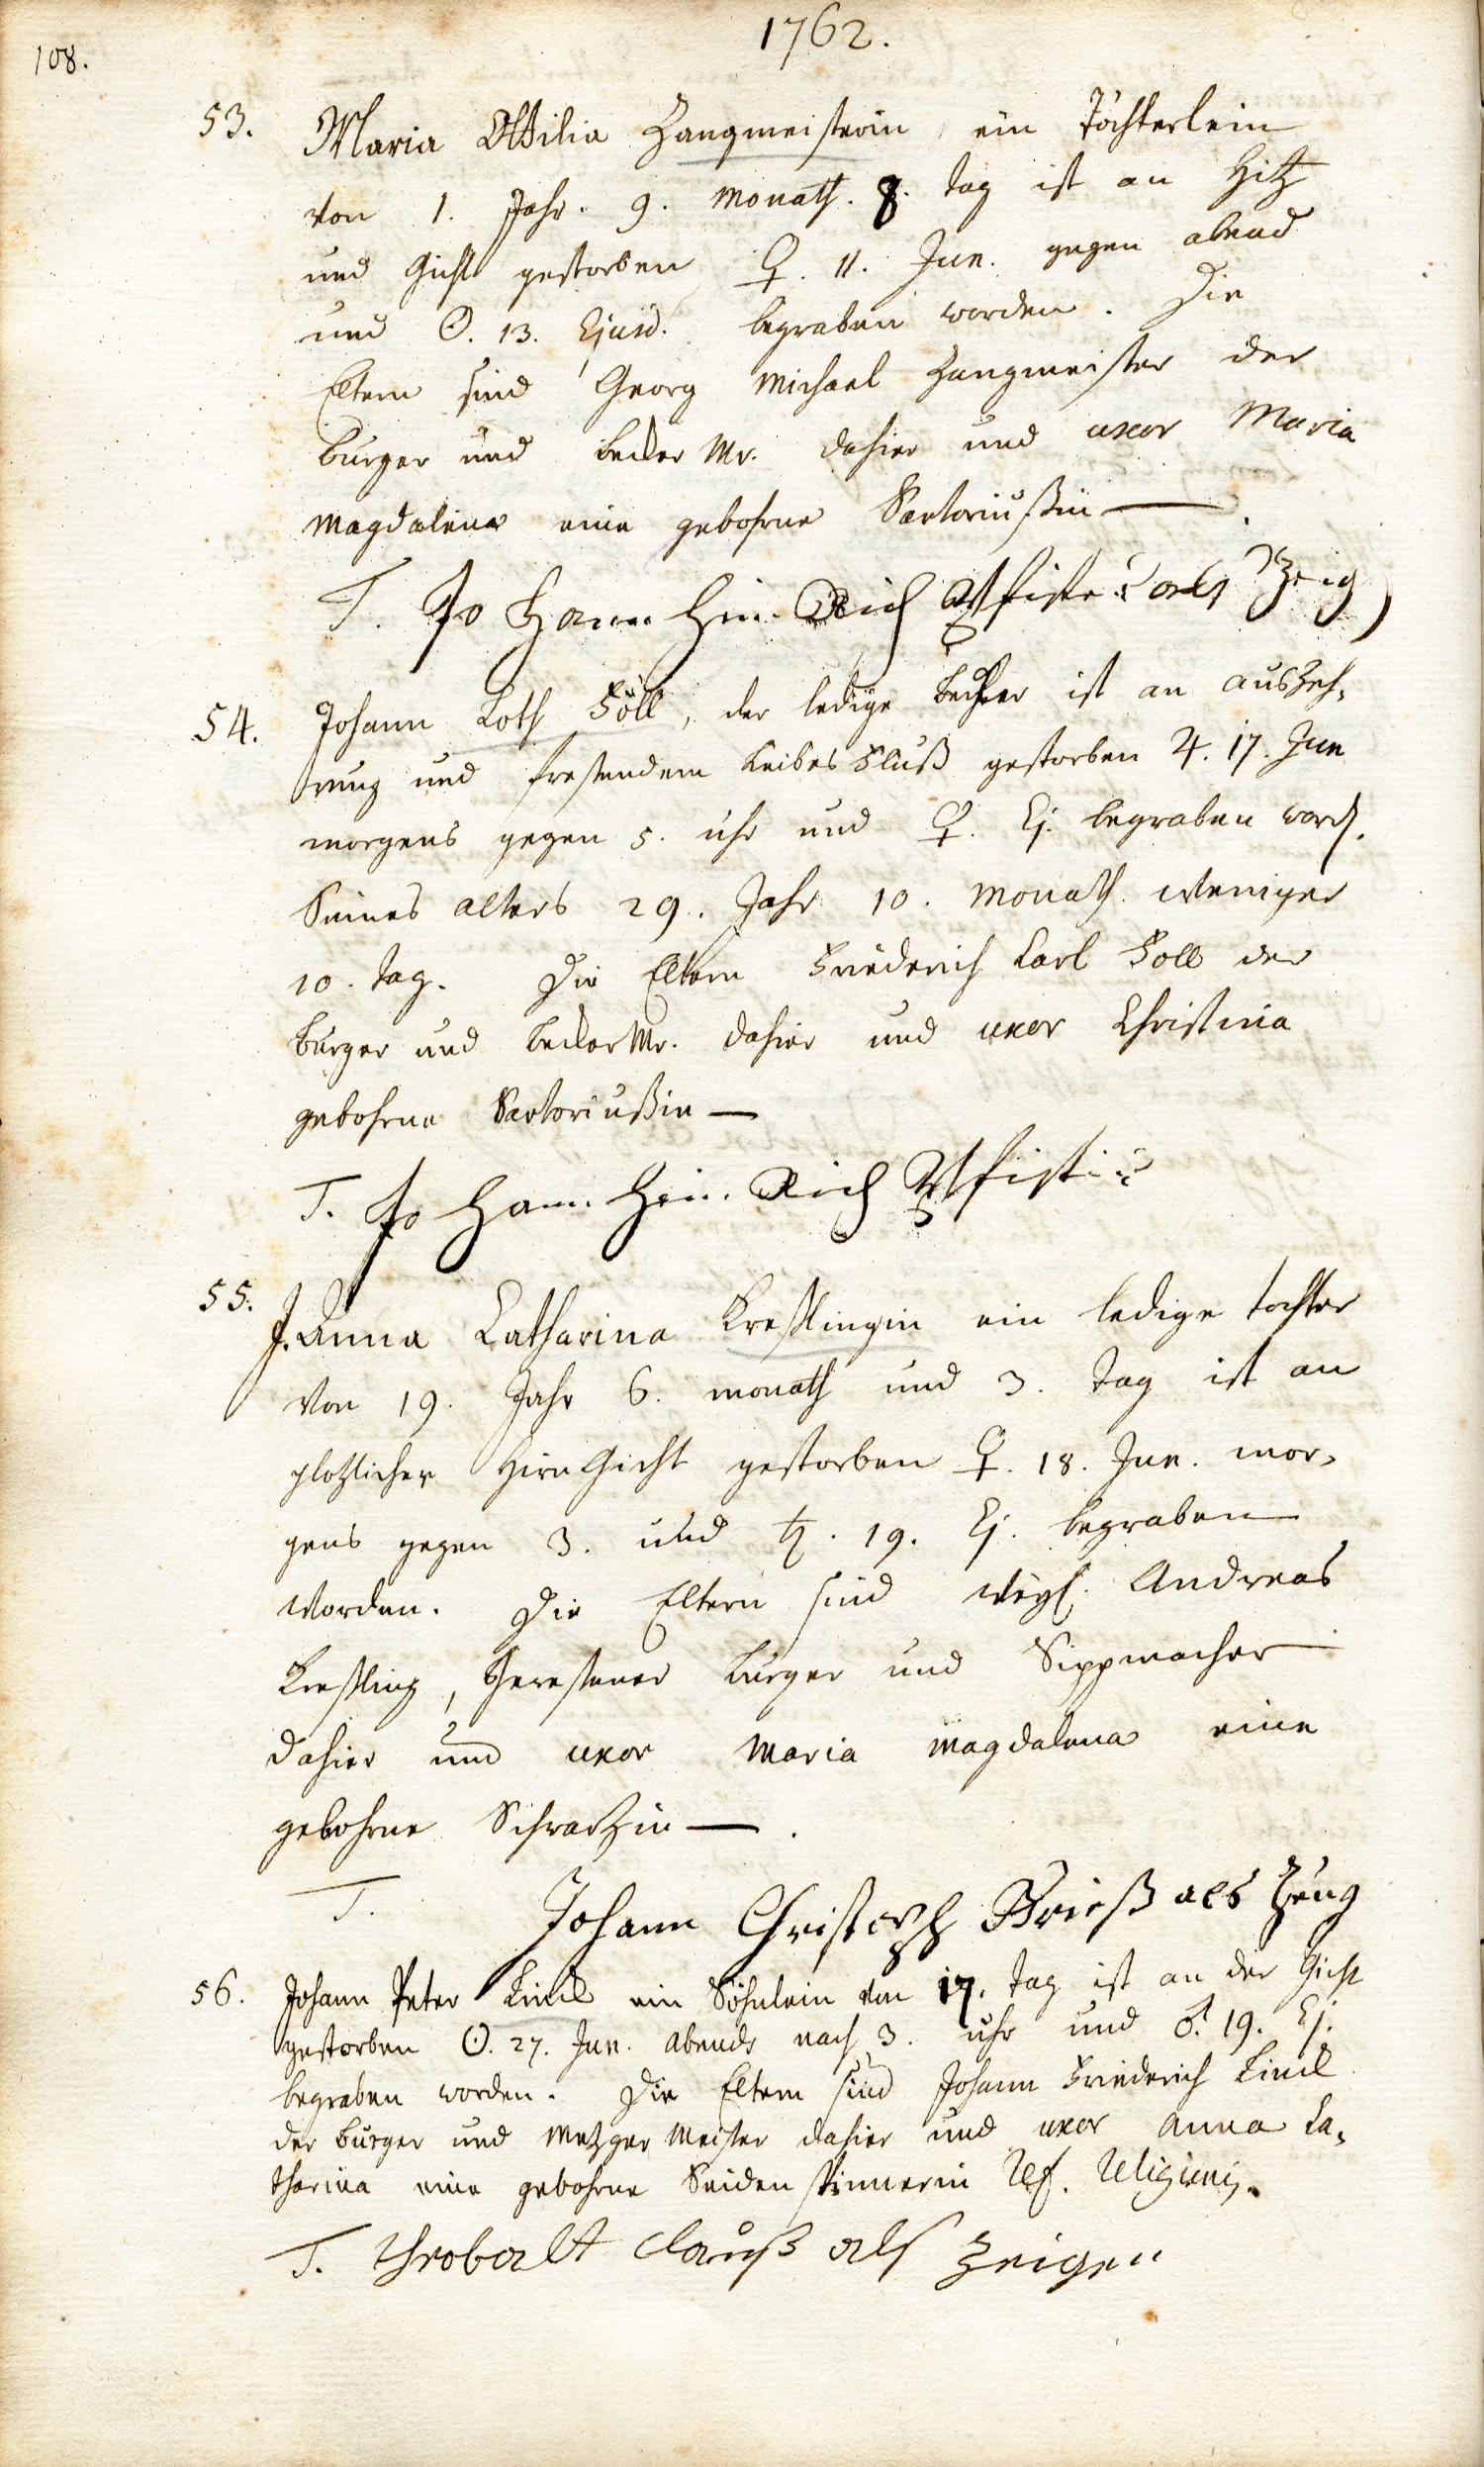 1762.
108.
53. Maria Ottilia Zangmeisterin ein Töchterlein
von 1. Jahr. 9. Monath. 8. tag ist an Hitz
und Gicht gestorben ♀. 11. Jun. gegen abend
und ☉. 13. Ejusd. begraben worden. Die
Eltern sind Georg Michael Zangmeister der
burger und becker Mr. dahier und uxor Maria
Magdalena eine gebohrne Sartoriußin — .
T. Jo Hann Hein Rich Pfister als Zeig
54. Johann Loth Föll, der ledige becker ist an auszeh-
rung und fresendem Leibes Fluß gestorben ♃. 17. Jun
morgens gegen 5. uhr und ♀. Ej. begraben word.
Seines alters 29. Jahr 10. Monath weniger
10. tag. Die Eltern Friederich Carl Föll der
burger und becker Mr. dahier und uxor Christina
gebohrne Sartoriußin —
T. Jo Hann Hein Rich Pfister
55. J. Anna Catharina Kreßlingin ein ledige tochter
Von 19. Jahr 6. monath und 3. tag ist an
plotzlicher Hirn Gicht gestorben ♀. 18. Jun. mor-
gens gegen 3. und ♄. 19. Ej. begraben
worden. Die Eltern sind weyl. Andreas
Kreßling, Gewesener burger und Sippmacher
dahier und uxor Maria Magdalena eine
gebohrne Schratzin — .
T. Johann Christoph Frieß als Zeug
56. Johann Peter Linck ein Söhnlein von 17. tag ist an der Gicht
gestorben ☉. 27. Jun. abends nach 3. uhr und ♂. 19. Ej.
begraben worden. Die Eltern sind Johann Friederich Linck
der burger und Metzger Meister dahier und uxor Anna Ca-
tharina eine gebohrne Seidenspinnerin Ref. Religionis.
T. Theobalt Clauß als Zeigen